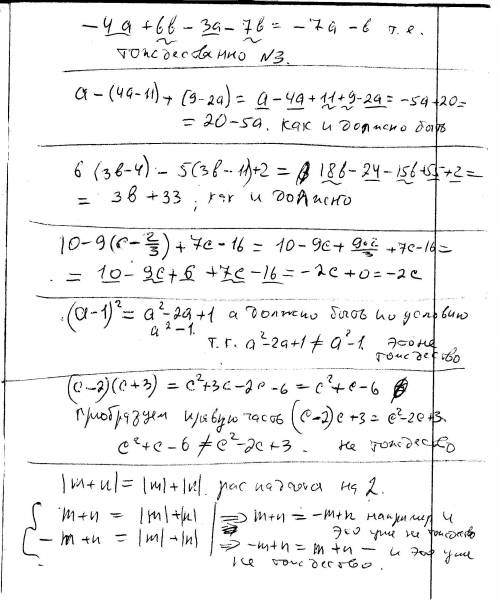 -4a + 6b - 3a - 7b = -7a - b т.е.
тождественно №3.
a-(4a-11)+(9-2a) = a-4a+11+9-2a = -5a+20=
= 20-5a. как и должно быть
6(3b-4) - 5(3b-11)+2 = 18b-24-15b+55+2=
= 3b+33, как и должно
10-9(c-2/3)+7c-16 = 10-9c+9·2/3+7c-16=
= 10-9c+6+7c-16=-2c+0=-2c
(a-1)²=a²-2a+1 а должно быть по условию
a²-1.
т.г. a²-2a+1≠a²-1. это не
тождество
(c-2)(c+3) = c²+3c-2c-6=c²+c-6
Преобразуем правую часть (c-2)c+3=c²-2c+3.
c²+c-6≠c²-2c+3. не тождество
|m+n|=|m|+|n|. распадаюся на 2.
m+n = |m|+|n| ⇒ m+n=-m+n например и
это уже не тождество
-m+n = |m|+|n| ⇒ -m+n=m+n - и это уже
не тождество.